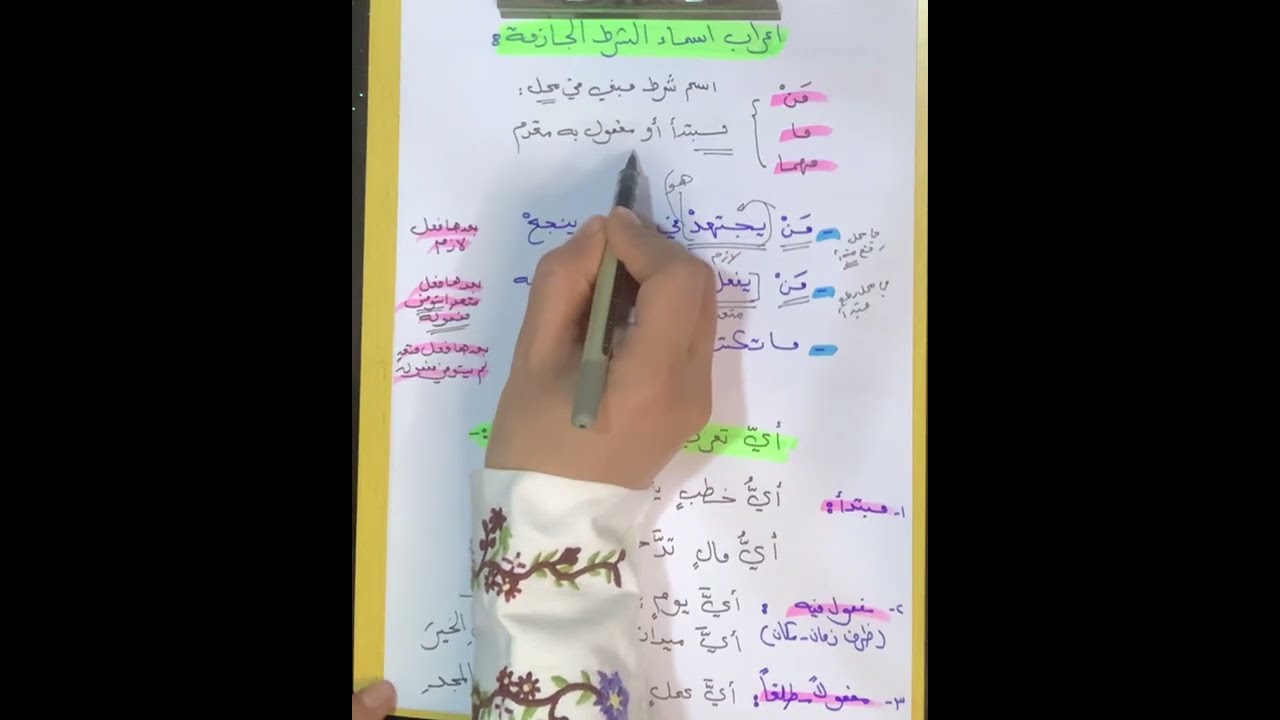 اعراب اسماء الشرط الجازمة :
مَنْ
ما
مهما
اسم شرط مبني في محل :
مبتدأ أو مفعول به مقدم
هو
- مَنْ يجتهدْ في ينجحْ
لازم
في محل رفع مبتدأ
بعدها فعل لازم
- مَنْ يفعل
في محل رفع مبتدأ
بعدها فعل متعد استوفى مفعوله
- ما تكت
بعدها فعل متعدٍ لم يستوفي مفعوله
أيّ تعر
١- مبتدأ :
أيُّ خطبٍ
أيُّ مالٍ
٢- مفعول فيه :
(ظرف زمان - مكان)
أيَّ يومٍ
أيَّ ميدان الخيرَ
٣- مفعولاً مطلقاً :
أيَّ عملٍ المجدِ